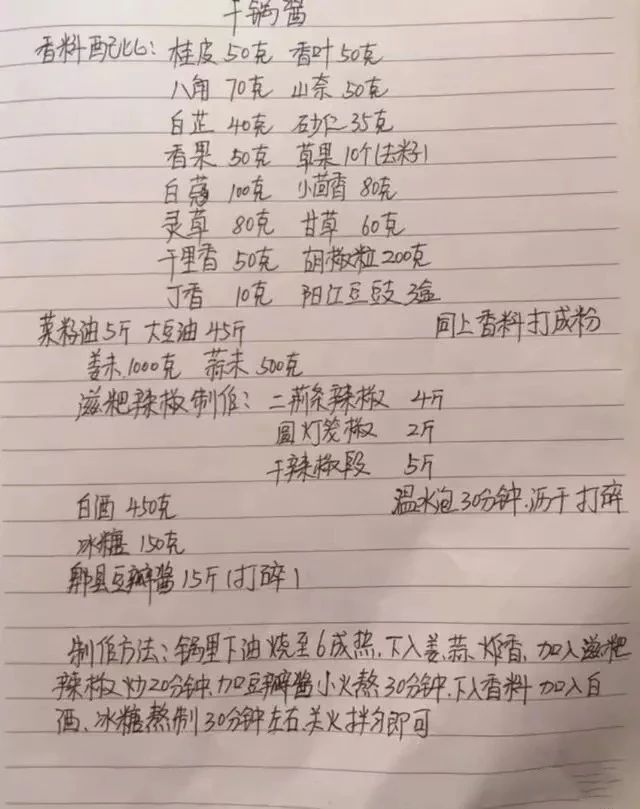 干锅酱
香料配比：桂皮50克 香叶50克
八角 70克 山奈 50克
白芷 40克 砂仁 35克
香果 50克 草果10个(去籽)
白蔻 100克 小茴香 80克
灵草 80克 甘草 60克
千里香 50克 胡椒粒200克
丁香 10克 阳江豆豉 3盒
菜籽油5斤 大豆油45斤 同上香料打成粉
姜末1000克 蒜末500克
滋粑辣椒制作：二荆条辣椒 4斤
圆灯笼椒 2斤
干辣椒段 5斤
白酒 450克 温水泡30分钟.沥干打碎
冰糖 150克
郫县豆瓣酱15斤(打碎)
制作方法：锅里下油烧至6成热,下入姜.蒜.炸香,加入滋粑
辣椒炒20分钟,加豆瓣酱小火熬30分钟,下入香料加入白
酒.冰糖熬制30分钟左右.关火拌匀即可